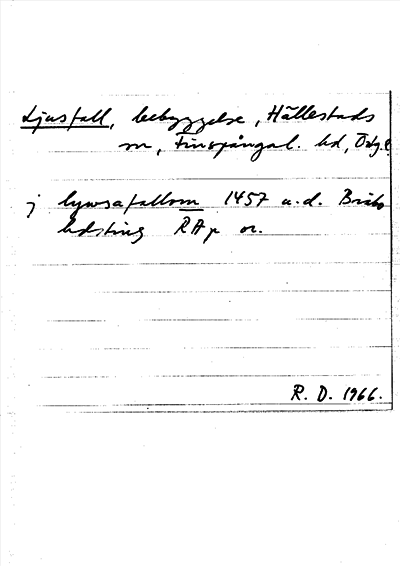 Ljusfall, bebyggelse, Hällestads
sn, Finspångal. hd, Ög.
j lywsafallom 1457 u.d. Bråbo
hdsting RAp or.
R. D. 1966.